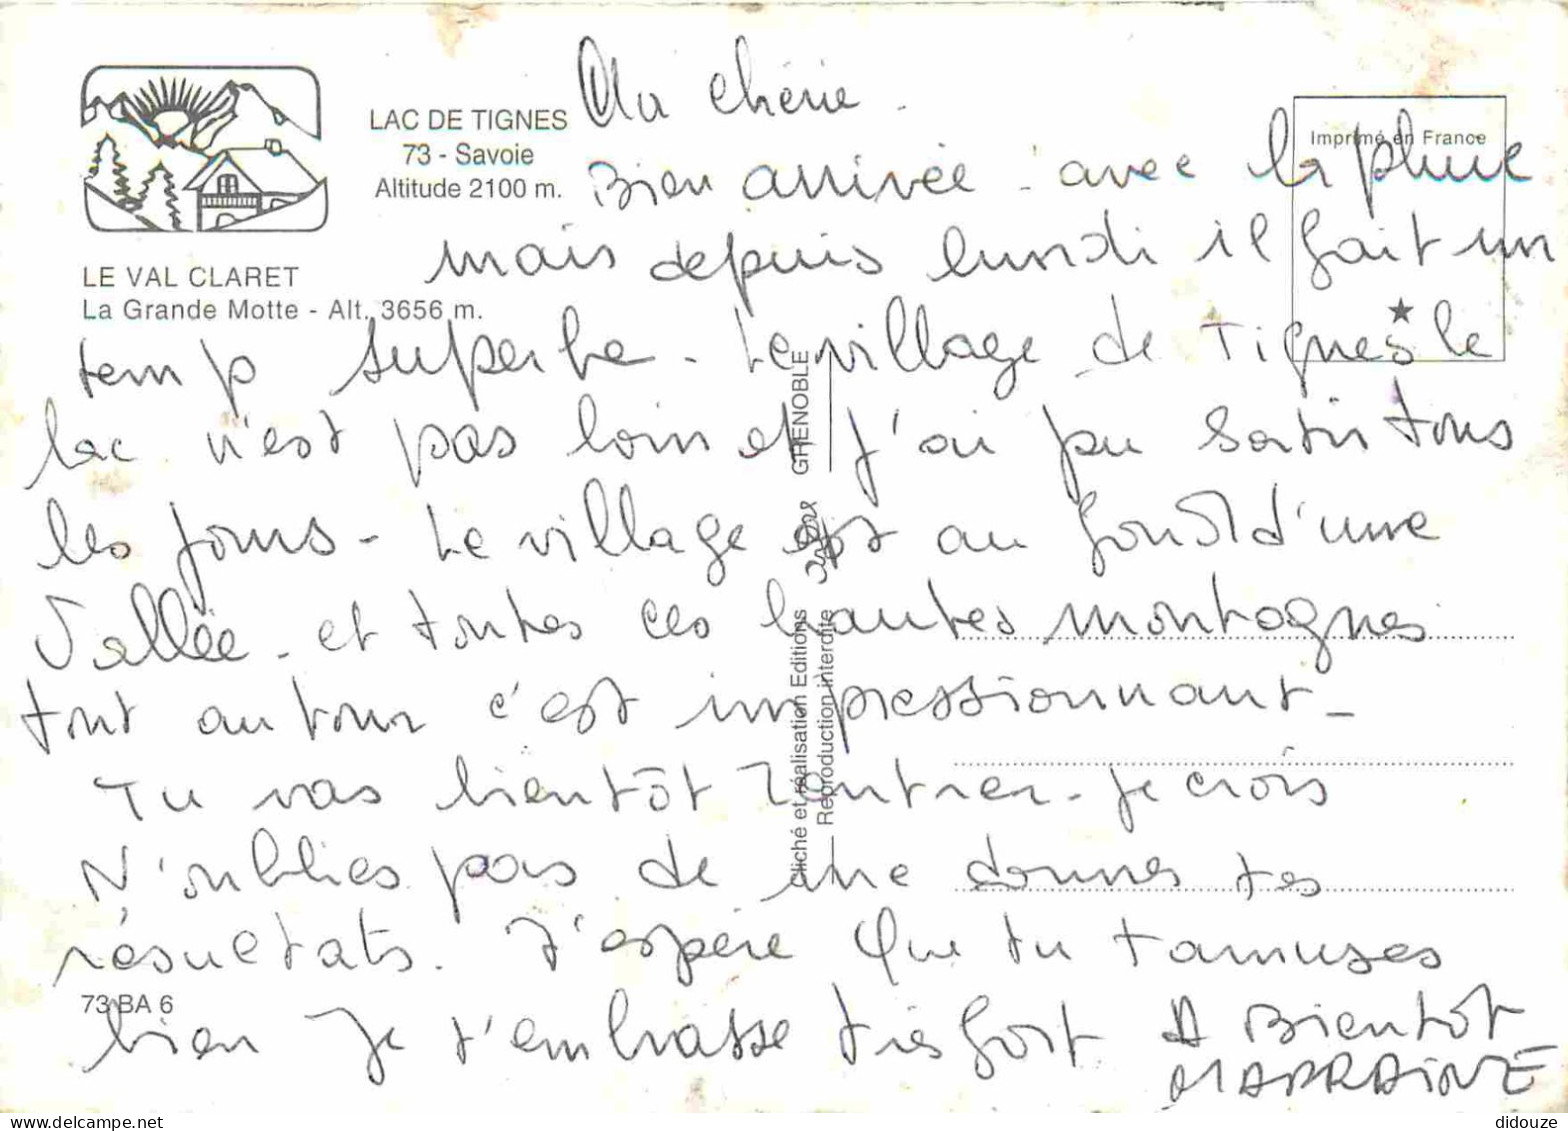 LAC DE TIGNES
73 - Savoie
Altitude 2100 m.
LE VAL CLARET
La Grande Motte - Alt. 3656 m.
Imprimé en France
Ma chérie.
Bien arrivée - avec la pluie
mais depuis lundi il fait un
temp superbe - Le village de Tignes le
lac n'est pas loin et j'ai pu sortir tous
les jours - Le village est au fond d'une
Vallée - et toutes ces hautes montagnes
tout autour c'est impressionnant -
Tu vas bientôt rentrer - je crois
N'oublies pas de me donner tes
résultats. J'espère que tu tamuses
bien Je t'embrasse très fort A Bientôt
MARRAINE
73 BA 6
Cliché et réalisation Editions
GRENOBLE
Reproduction interdite
didouze